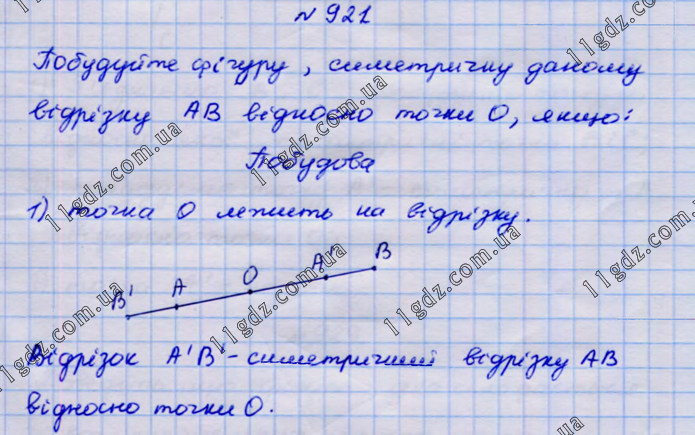 № 921
Побудуйте фігуру, симетричну даному
відрізку АВ відносно точки О, якщо:
Побудова
1) точка О лежить на відрізку.
B' A O A' B
Відрізок A'B' - симетричний відрізку AB
відносно точки О.
11gdz.com.ua
11gdz.com.ua
11gdz.com.ua
11gdz.com.ua
11gdz.com.ua
11gdz.com.ua
11gdz.com.ua
11gdz.com.ua